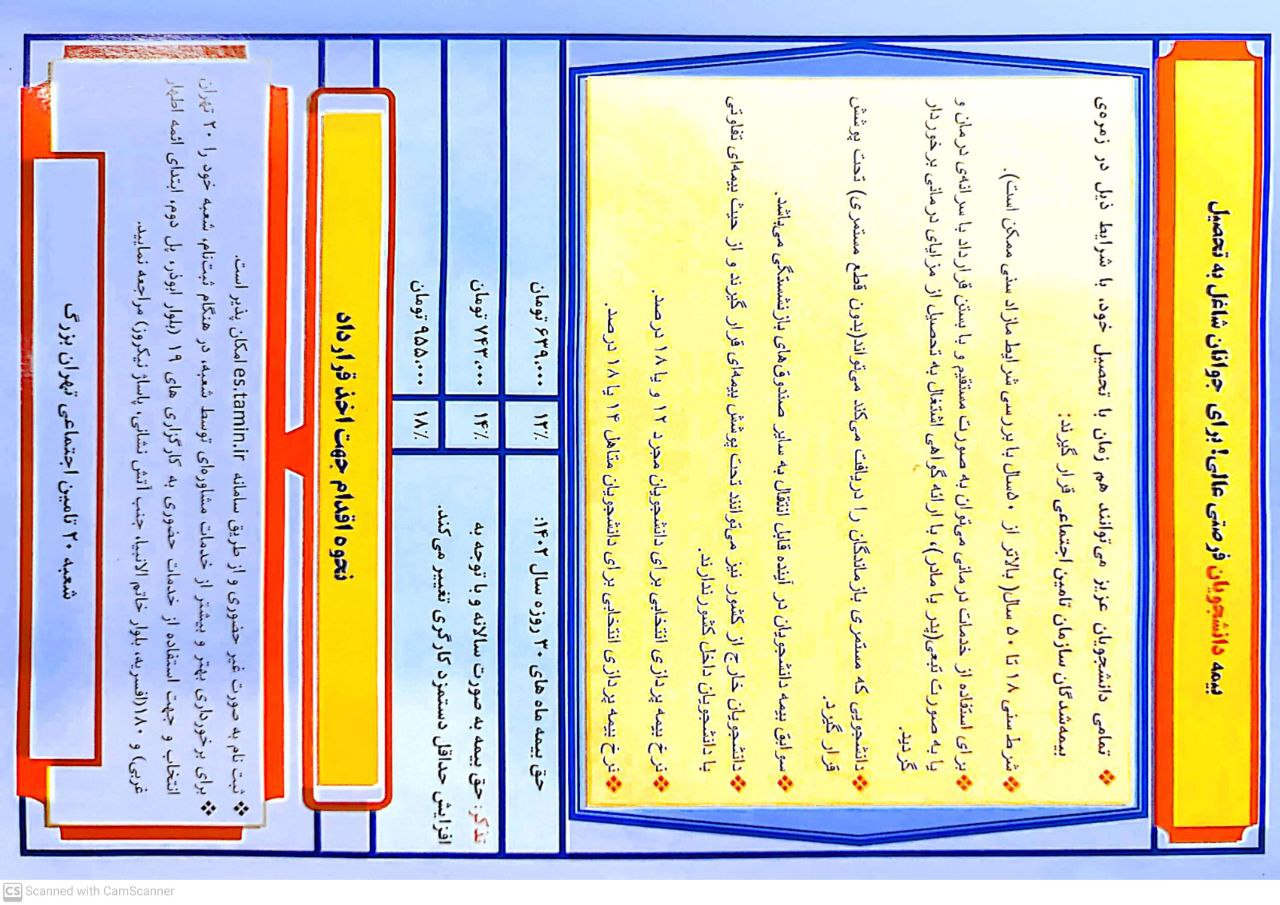 بیمه دانشجویان فرصتی عالی! برای جوانان شاغل به تحصیل
تمامی دانشجویان عزیز می‌توانند هم زمان با تحصیل خود، با شرایط ذیل در زمره‌ی
بیمه‌شدگان سازمان تامین اجتماعی قرار گیرند:
شرط سنی ۱۸ تا ۵۰ سال( بالاتر از ۵۰سال با بررسی شرایط مازاد سنی ممکن است).
برای استفاده از خدمات درمانی می‌توان به صورت مستقیم و با بستن قرارداد با سرانه‌ی درمان و
یا به صورت تبعی(پدر یا مادر)، با ارائه گواهی اشتغال به تحصیل از مزایای درمانی برخوردار
گردید.
دانشجویی که مستمری بازماندگان را دریافت می‌کند می‌تواند(بدون قطع مستمری) تحت پوشش
قرار گیرد.
سوابق بیمه دانشجویان در آینده قابل انتقال به سایر صندوق‌های بازنشستگی می‌باشد.
دانشجویان خارج از کشور نیز می‌توانند تحت پوشش بیمه‌ای قرار گیرند و از حیث بیمه‌ای تفاوتی
با دانشجویان داخل کشورندارند.
نرخ بیمه پردازی انتخابی برای دانشجویان مجرد ۱۲ و یا ۱۸ درصد.
نرخ بیمه پردازی انتخابی برای دانشجویان متاهل ۱۴ یا ۱۸ درصد.
حق بیمه ماه های ۳۰ روزه سال ۱۴۰۲: ۱۲٪ ۶۳۹،۰۰۰ تومان
تذکر: حق بیمه به صورت سالانه و با توجه به ۱۴٪ ۷۴۳،۰۰۰ تومان
افزایش حداقل دستمزد کارگری تغییر می‌کند.
۱۸٪ ۹۵۵،۰۰۰ تومان
نحوه اقدام جهت اخذ قرارداد
ثبت نام به صورت غیر حضوری و از طریق سامانه es.tamin.ir امکان پذیر است.
برای برخورداری بهتر و بیشتر از خدمات مشاوره‌ای توسط شعبه، در هنگام ثبت‌نام، شعبه خود را ۲۰ تهران
انتخاب و جهت استفاده از خدمات حضوری به کارگزاری های ۱۹ (بلوار ابوذر، پل دوم، ابتدای ائمه اطهار
غربی) و ۱۸۰(افسریه، بلوار خاتم الانبیا، جنب آتش نشانی، پاساژ نیکروز) مراجعه نمایید.
شعبه ۲۰ تامین اجتماعی تهران بزرگ
CS Scanned with CamScanner